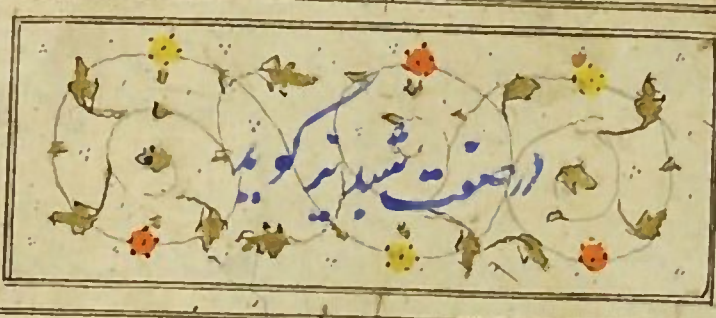 در صفت شبدیز گوید